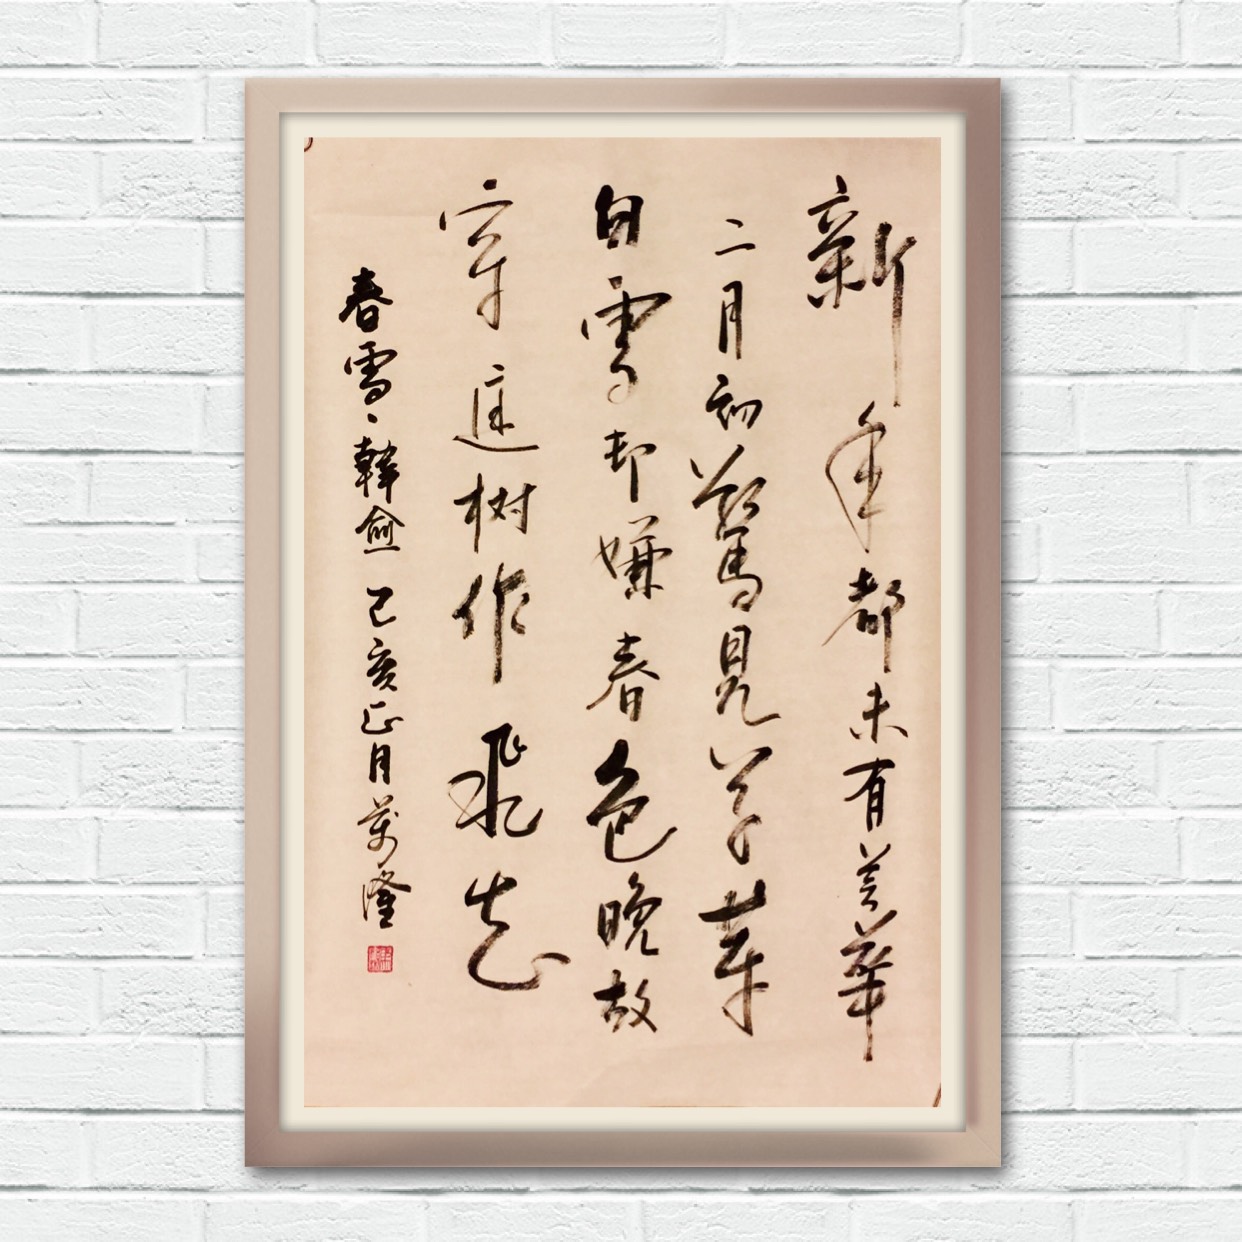 新年都未有芳華
二月初驚見草芽
白雪却嫌春色晚故
穿庭树作飛花
春雪、韓愈 己亥正月萬隆